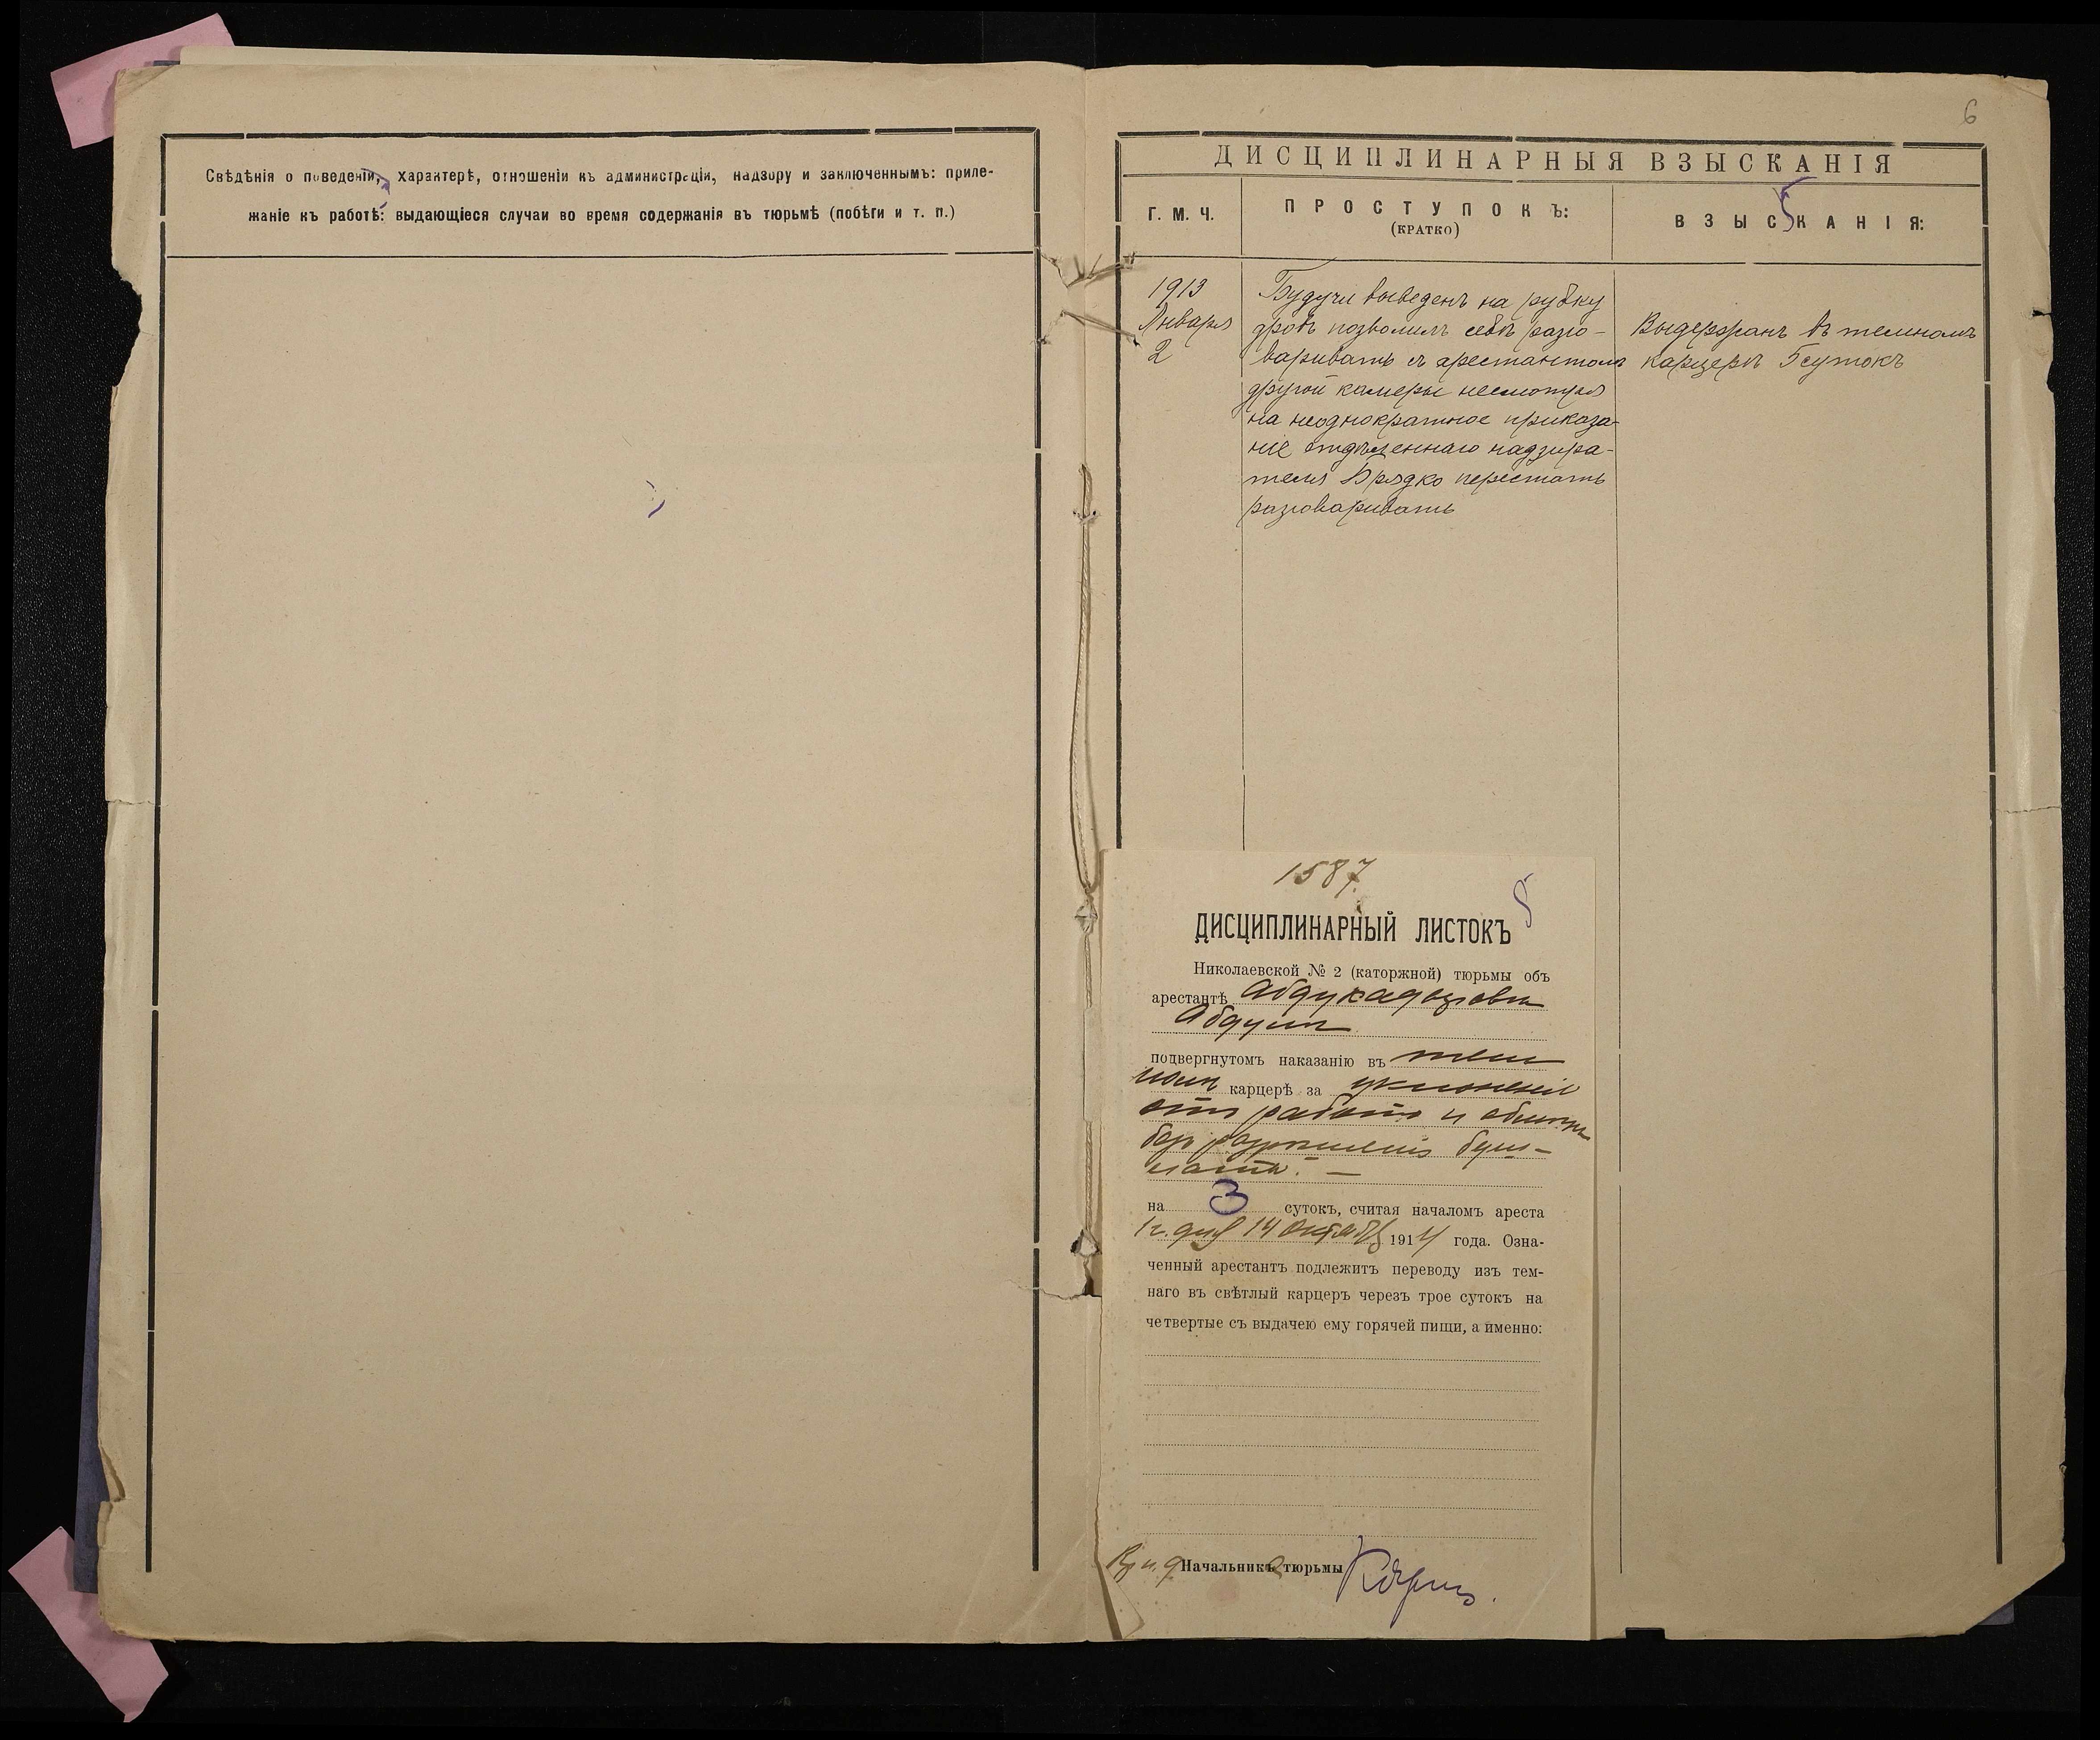 Свѣдѣнія о поведеніи, характерѣ, отношеніи къ администраціи, надзору и заключеннымъ: приле-
жаніе къ работѣ: выдающіеся случаи во время содержанія въ тюрьмѣ (побѣги и т. п.)
6
ДИСЦИПЛИНАРНЫЯ ВЗЫСКАНІЯ
Г. М. Ч.
ПРОСТУПОКЪ:
(КРАТКО)
ВЗЫСКАНІЯ:
5
1913
Января
2
Будучи выведенъ на рубку
дровъ позволилъ себѣ разго-
варивать съ арестантомъ
другой камеры несмотря
на неоднократное приказа-
ніе отдѣленнаго надзира-
теля Брядко перестать
разговаривать
Выдержанъ въ темномъ
карцерѣ 5 сутокъ
1587
ДИСЦИПЛИНАРНЫЙ ЛИСТОКЪ
Николаевской № 2 (каторжной) тюрьмы объ
арестантѣ
подвергнутомъ наказанію въ тем
номъ карцерѣ за уклоненіе
отъ работъ и
безъ разрѣшенія буш-
лата. —
на 3 сутокъ, считая началомъ ареста
14 октября 1914 года. Озна-
ченный арестантъ подлежитъ переводу изъ тем-
наго въ свѣтлый карцеръ черезъ трое сутокъ на
четвертые съ выдачею ему горячей пищи, а именно:
Начальника тюрьмы